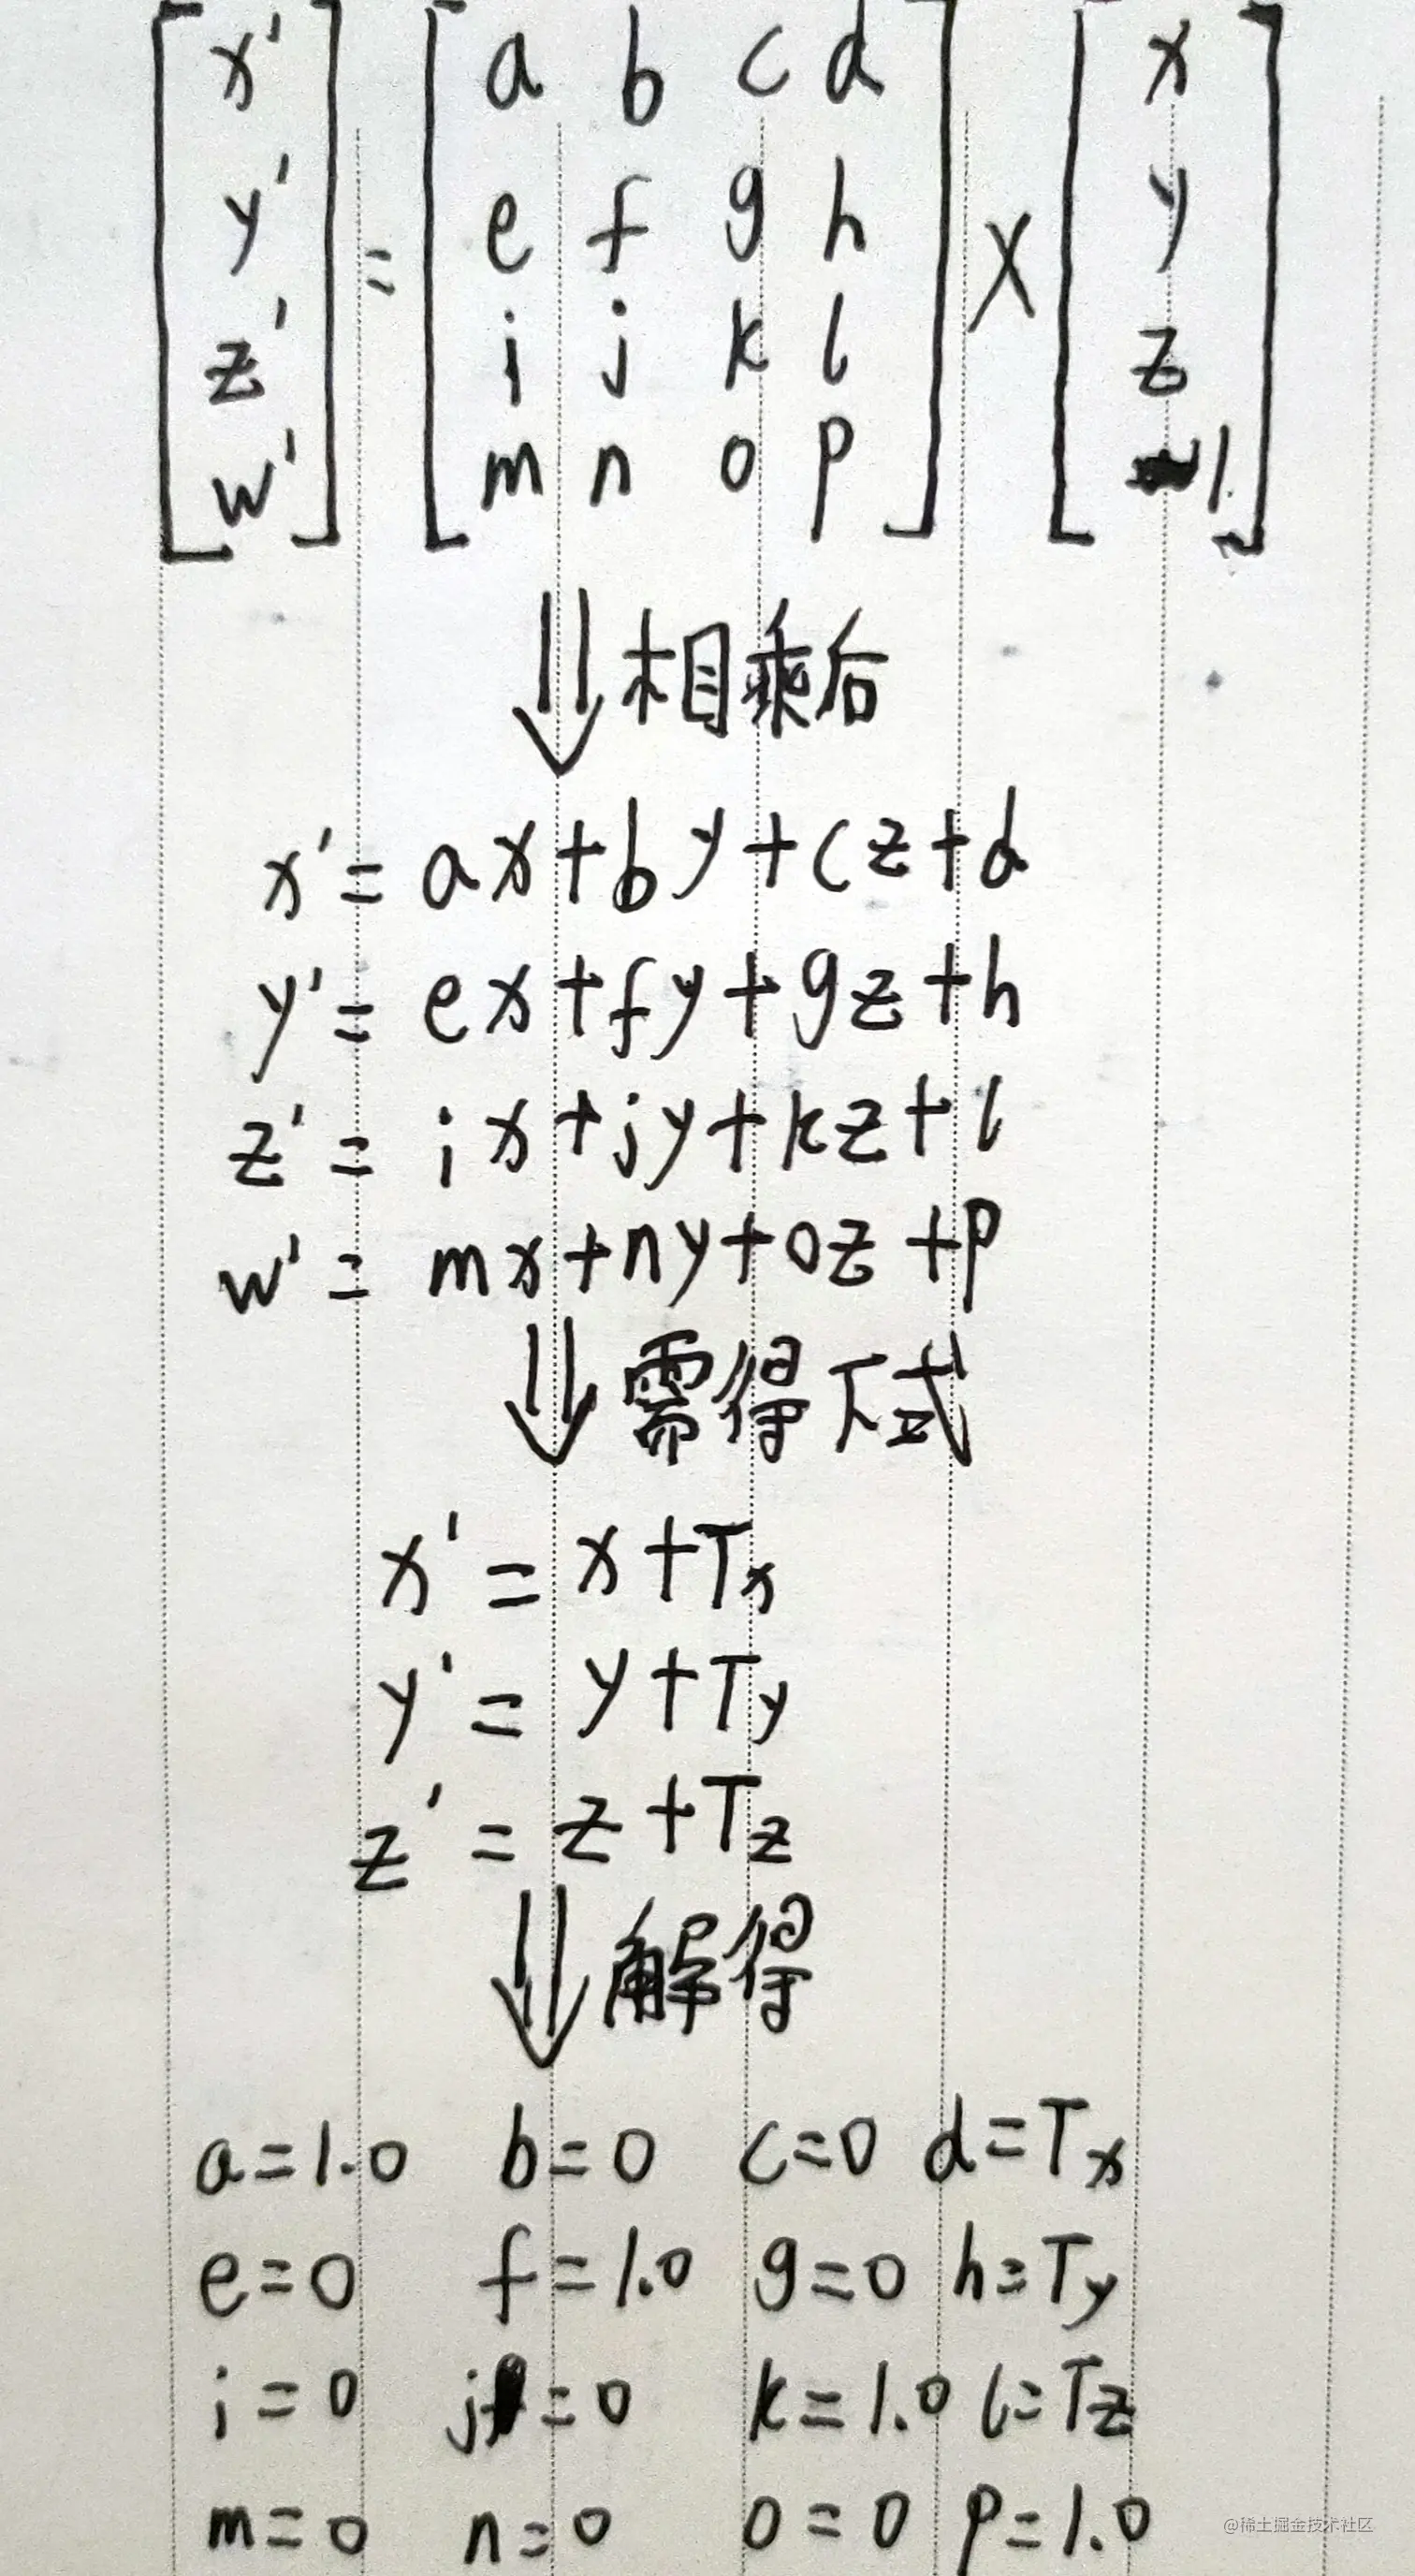 x' a b c d x
y' = e f g h X y
z' i j k l z
w' m n o p 1
相乘后
x' = ax+by+cz+d
y' = ex+fy+gz+h
z' = ix+jy+kz+l
w' = mx+ny+oz+p
需得下式
x' = x+Tx
y' = y+Ty
z' = z+Tz
解得
a=1.0 b=0 c=0 d=Tx
e=0 f=1.0 g=0 h=Ty
i=0 j=0 k=1.0 l=Tz
m=0 n=0 o=0 p=1.0
@稀土掘金技术社区